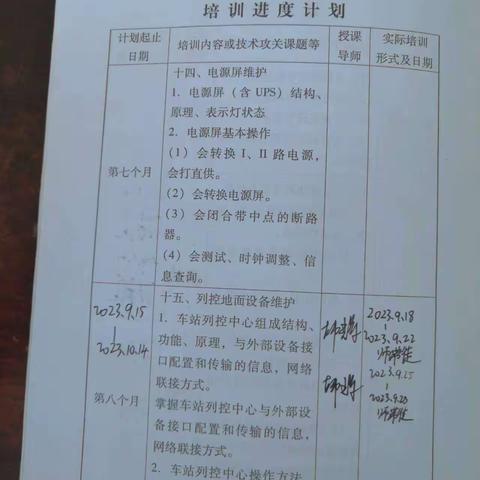 培训进度计划
计划起止
日期
培训内容或技术攻关课题等
授课
导师
实际培训
形式及日期
第七个月
十四、电源屏维护
1. 电源屏（含 UPS）结构、
原理、表示灯状态
2. 电源屏基本操作
（1）会转换 I、II 路电源，
会打直供。
（2）会转换电源屏。
（3）会闭合带中点的断路
器。
（4）会测试、时钟调整、信
息查询。
2023.9.15
2023.10.14
第八个月
十五、列控地面设备维护
1. 车站列控中心组成结构、
功能、原理，与外部设备接
口配置和传输的信息，网络
联接方式。
掌握车站列控中心与外部设
备接口配置和传输的信息，
网络联接方式。
2. 车站列控中心操作方法
2023.9.18
2023.9.22
师带徒
2023.9.25
师带徒